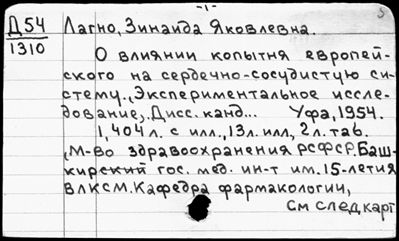 -1-
5
Д54 Лагно, Зинаида Яковлевна.
1310
О влиянии копытня европей-
ского на сердечно-сосудистую си-
стему. "Экспериментальное иссле-
дование". Дисс. канд... Уфа, 1954.
1,404 л. с илл., 13л. илл., 2л. таб.
/М-во здравоохранения РСФСР. Баш-
кирский гос. мед. ин-т им. 15-летия
ВЛКСМ. Кафедра фармакологии,
См след карт